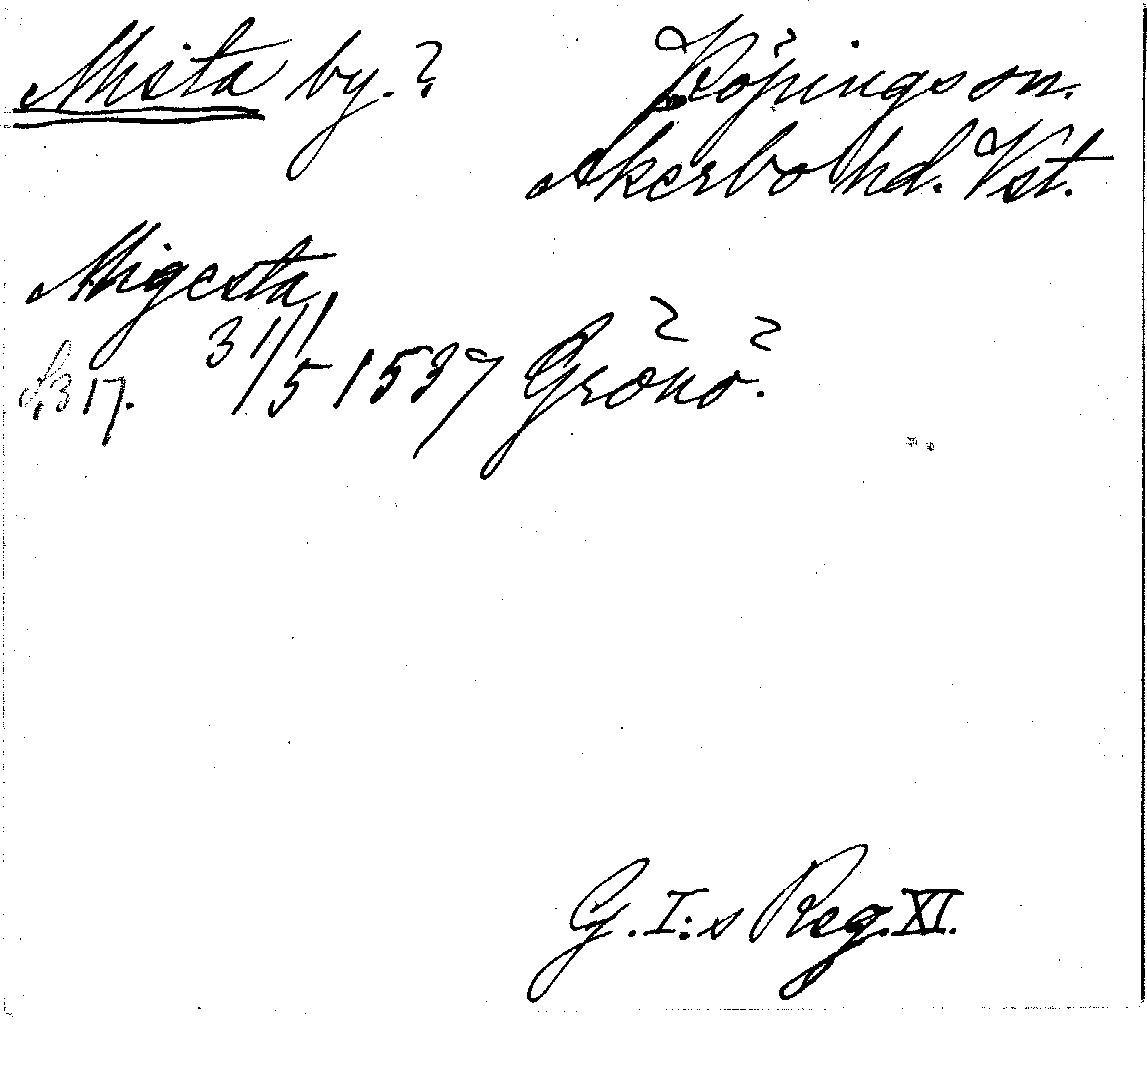 Mista by.?
Köpings sn.
Åkerbo hd. Vst.
Migesta,
s. 317. 31/5 1537 Grönö.
G.I:s Reg. XI.